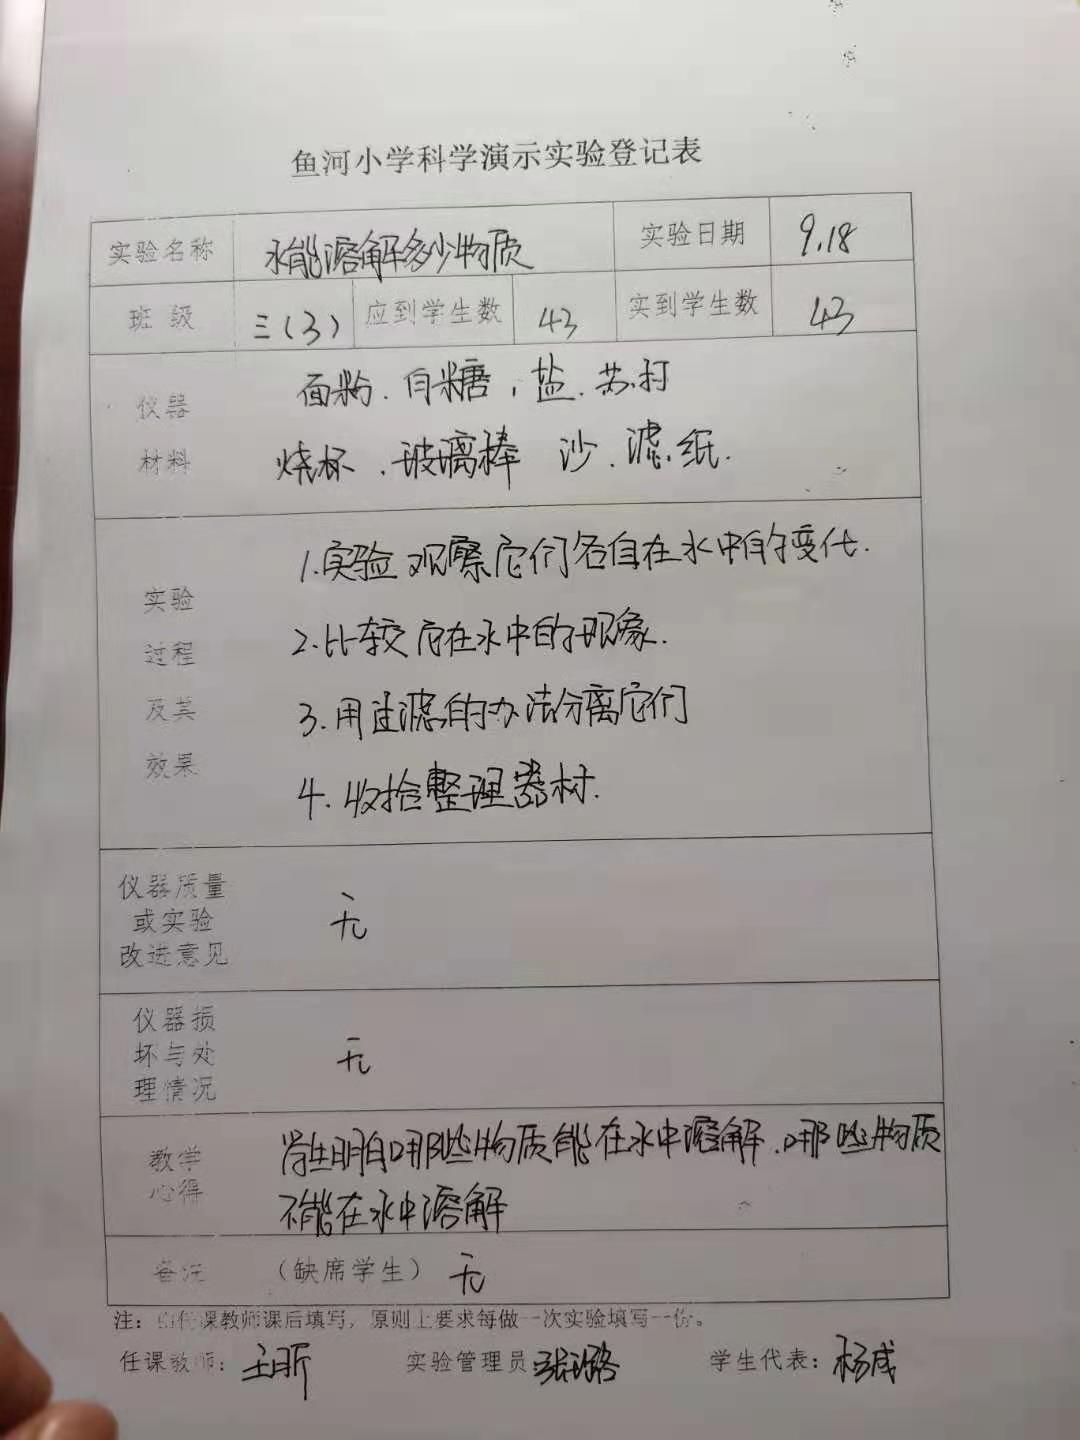 鱼河小学科学演示实验登记表
实验名称 水能溶解多少物质 实验日期 9.18
班级 三(3) 应到学生数 43 实到学生数 43
仪器
材料
面粉.白糖,盐.苏打
烧杯.玻璃棒 沙.滤纸.
实验
过程
及其
效果
1.实验 观察它们各自在水中的变化.
2.比较 在水中的现象.
3.用过滤的办法分离它们
4.收拾整理器材.
仪器质量
或实验
改进意见
无
仪器损
坏与处
理情况
无
教学
心得
学生明白哪些物质能在水中溶解.哪些物质
不能在水中溶解
备注 (缺席学生) 无
注：由任课教师课后填写，原则上要求每做一次实验填写一份。
任课教师：王昕 实验管理员:张璐 学生代表：杨成